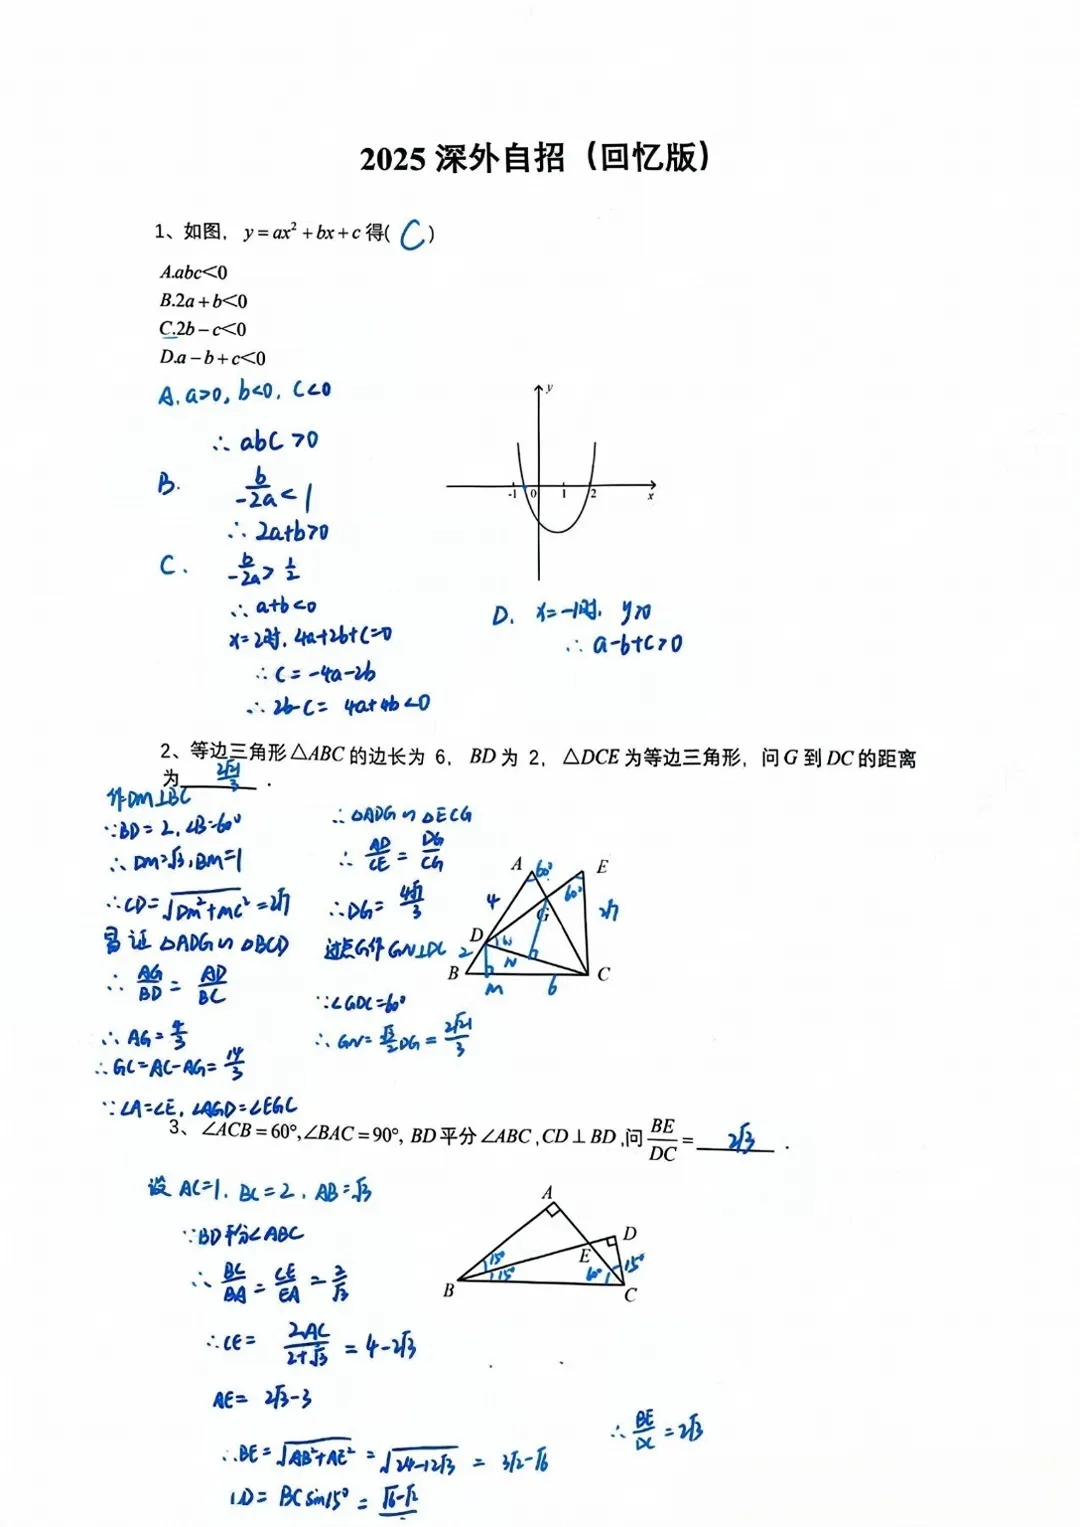 2025 深外自招（回忆版）
1、如图，y = ax² + bx + c 得( C )
A.abc<0
B.2a + b<0
C.2b − c<0
D.a − b + c<0
A. a>0, b<0, c<0
∴ abc >0
B. b/-2a < 1
∴ 2a+b>0
C. b/-2a > 1/2
∴ a+b<0
x=2时, 4a+2b+c=0
∴ c = -4a-2b
∴ 2b-c = 4a+4b<0
y
-1 0 1 2 x
D. x=-1时, y>0
∴ a-b+c>0
2、等边三角形 △ABC 的边长为 6， BD 为 2， △DCE 为等边三角形，问 G 到 DC 的距离
为 2√21/3 .
作DM⊥BC
∵BD=2, ∠B=60°
∴ DM=√3, BM=1
∴CD=√DM²+MC² =2√7
易证 △ADG∽△BCD
∴ AG/BD = AD/BC
∴ AG=4/3
∴GC=AC-AG=14/3
∵∠A=∠E, ∠AGD=∠EGC
∴△ADG∽△ECG
∴ AD/CE = DG/CG
∴DG= 4√7/3
过点G作GN⊥DC
∵∠GDC=60°
∴ GN=√3/2 DG = 2√21/3
A 60° E
4 60°
G 2√7
D 60°
2 N
B C
M 6
3、∠ACB = 60°,∠BAC = 90°, BD 平分 ∠ABC , CD ⊥ BD ,问 BE/DC = 2√3 .
设 AC=1, BC=2, AB=√3
∵BD平分∠ABC
∴ BC/BA = CE/EA = 2/√3
∴CE= 2AC/2+√3 = 4-2√3
AE= 2√3-3
∴BE=√AB²+AE² =√24-12√3 = 3√2-√6
CD= BCsin15° = √6-√2
∴ BE/DC =2√3
A
D
15° E
15° 60° 15°
B C